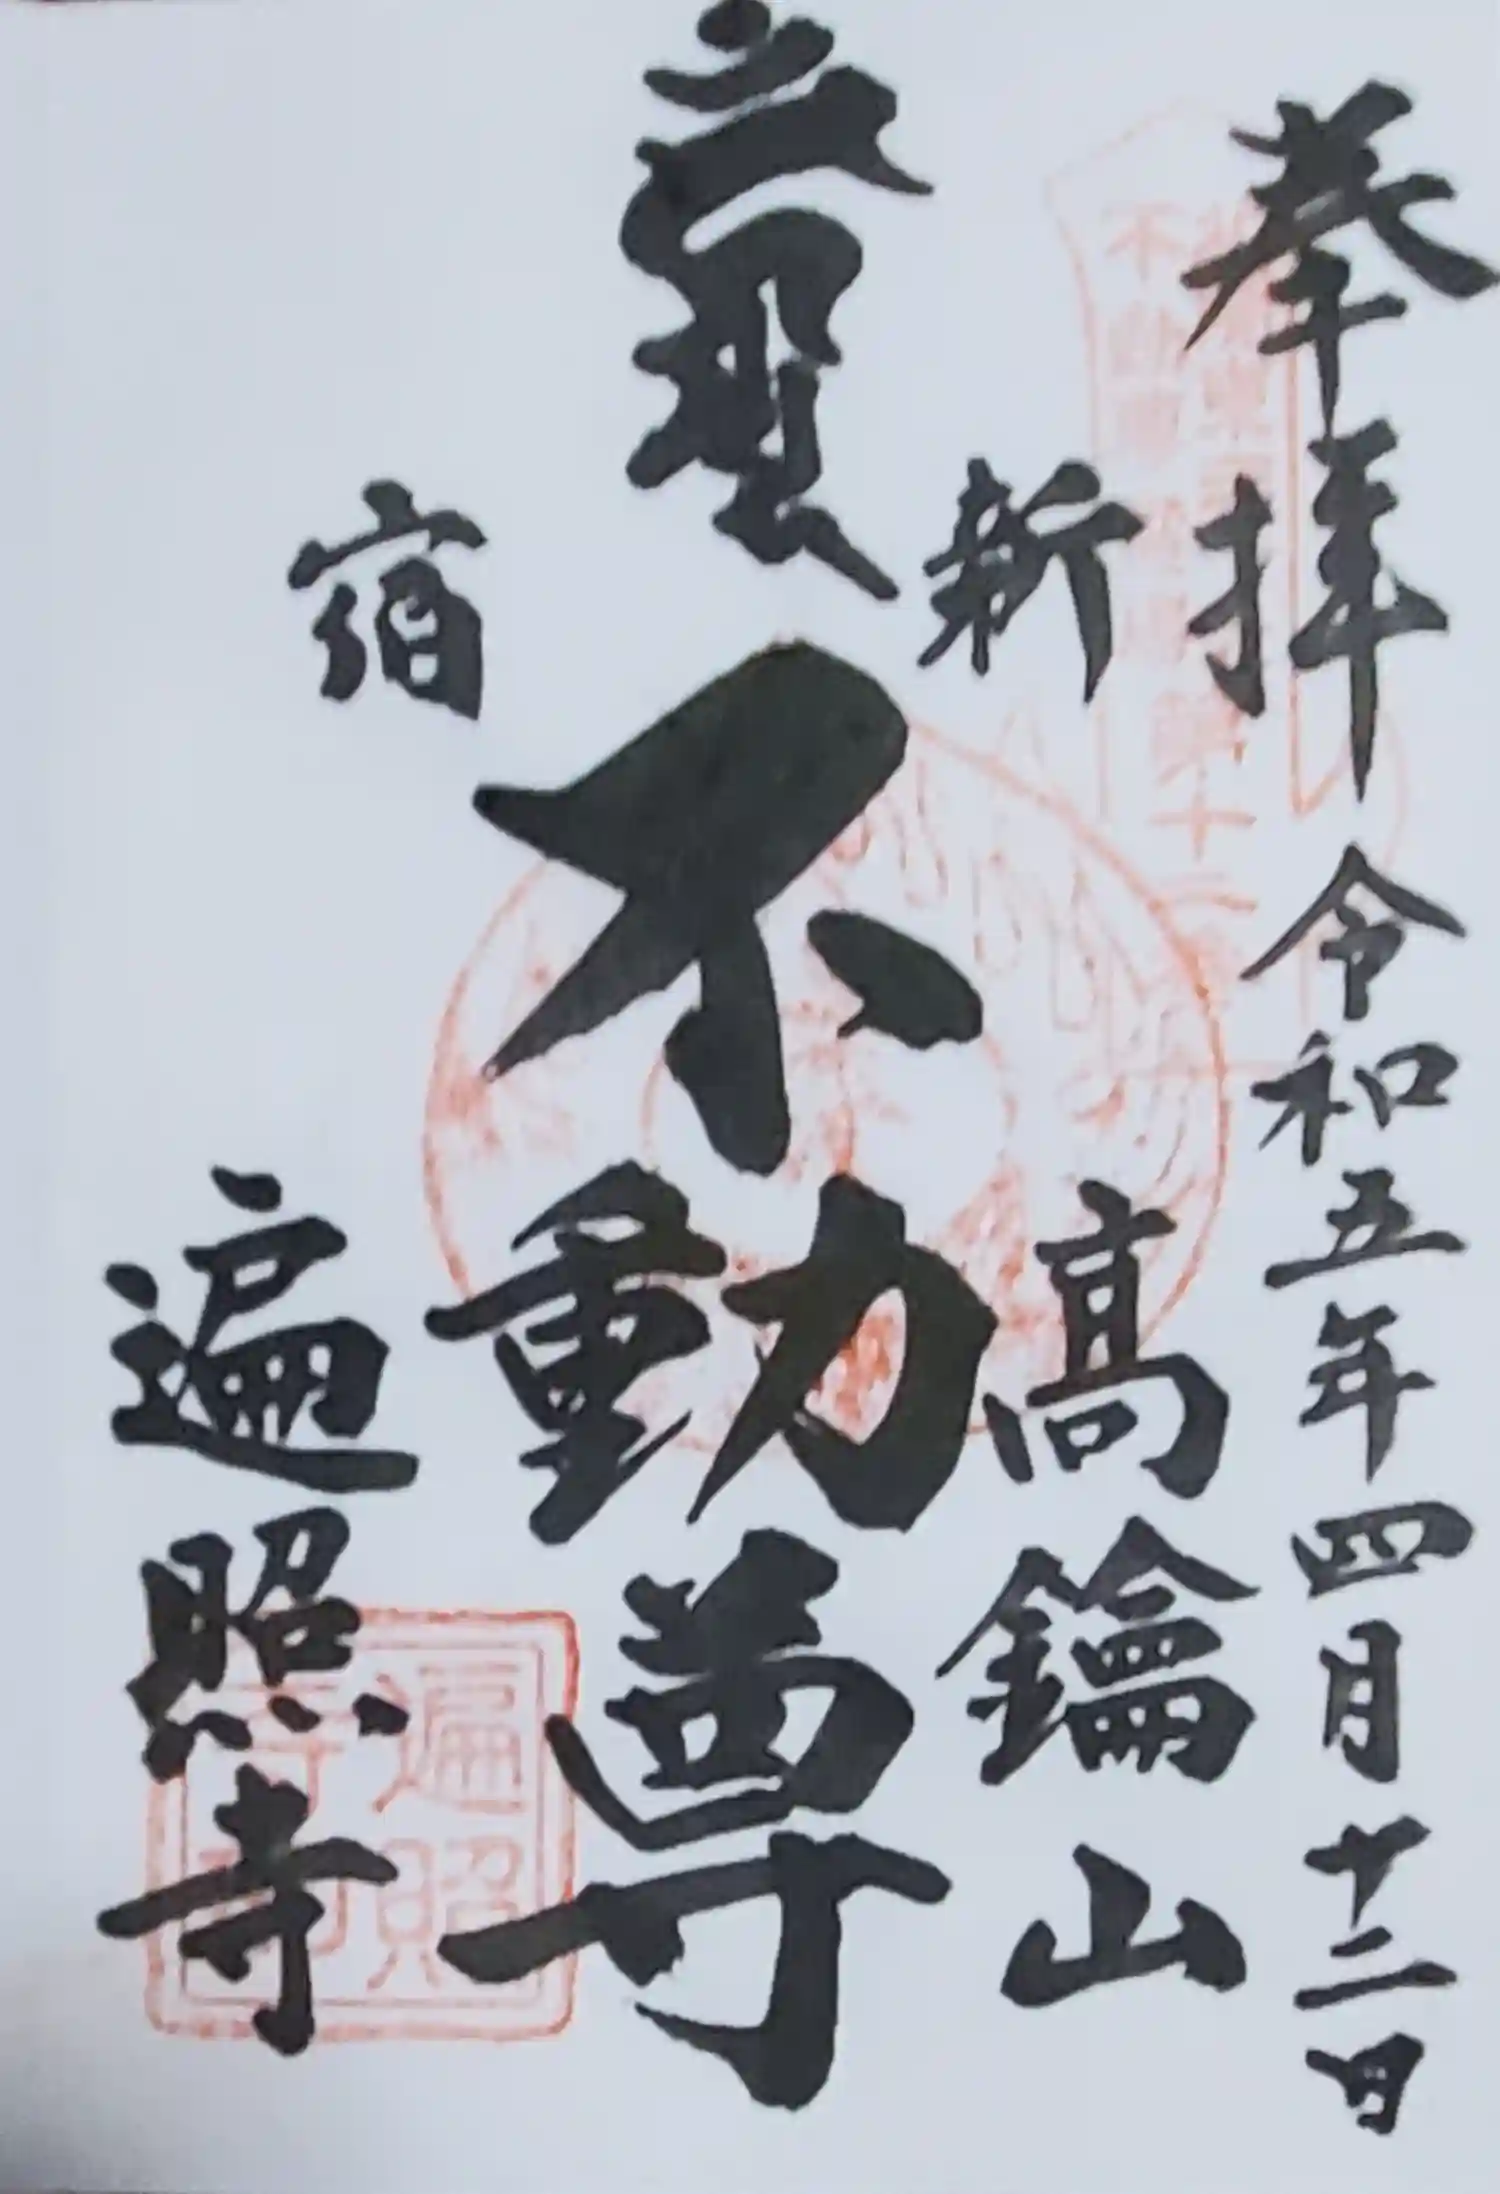 奉拝 令和五年四月廿二日
新 高鑰山
不動尊
宿 遍照寺
遍照
寺印